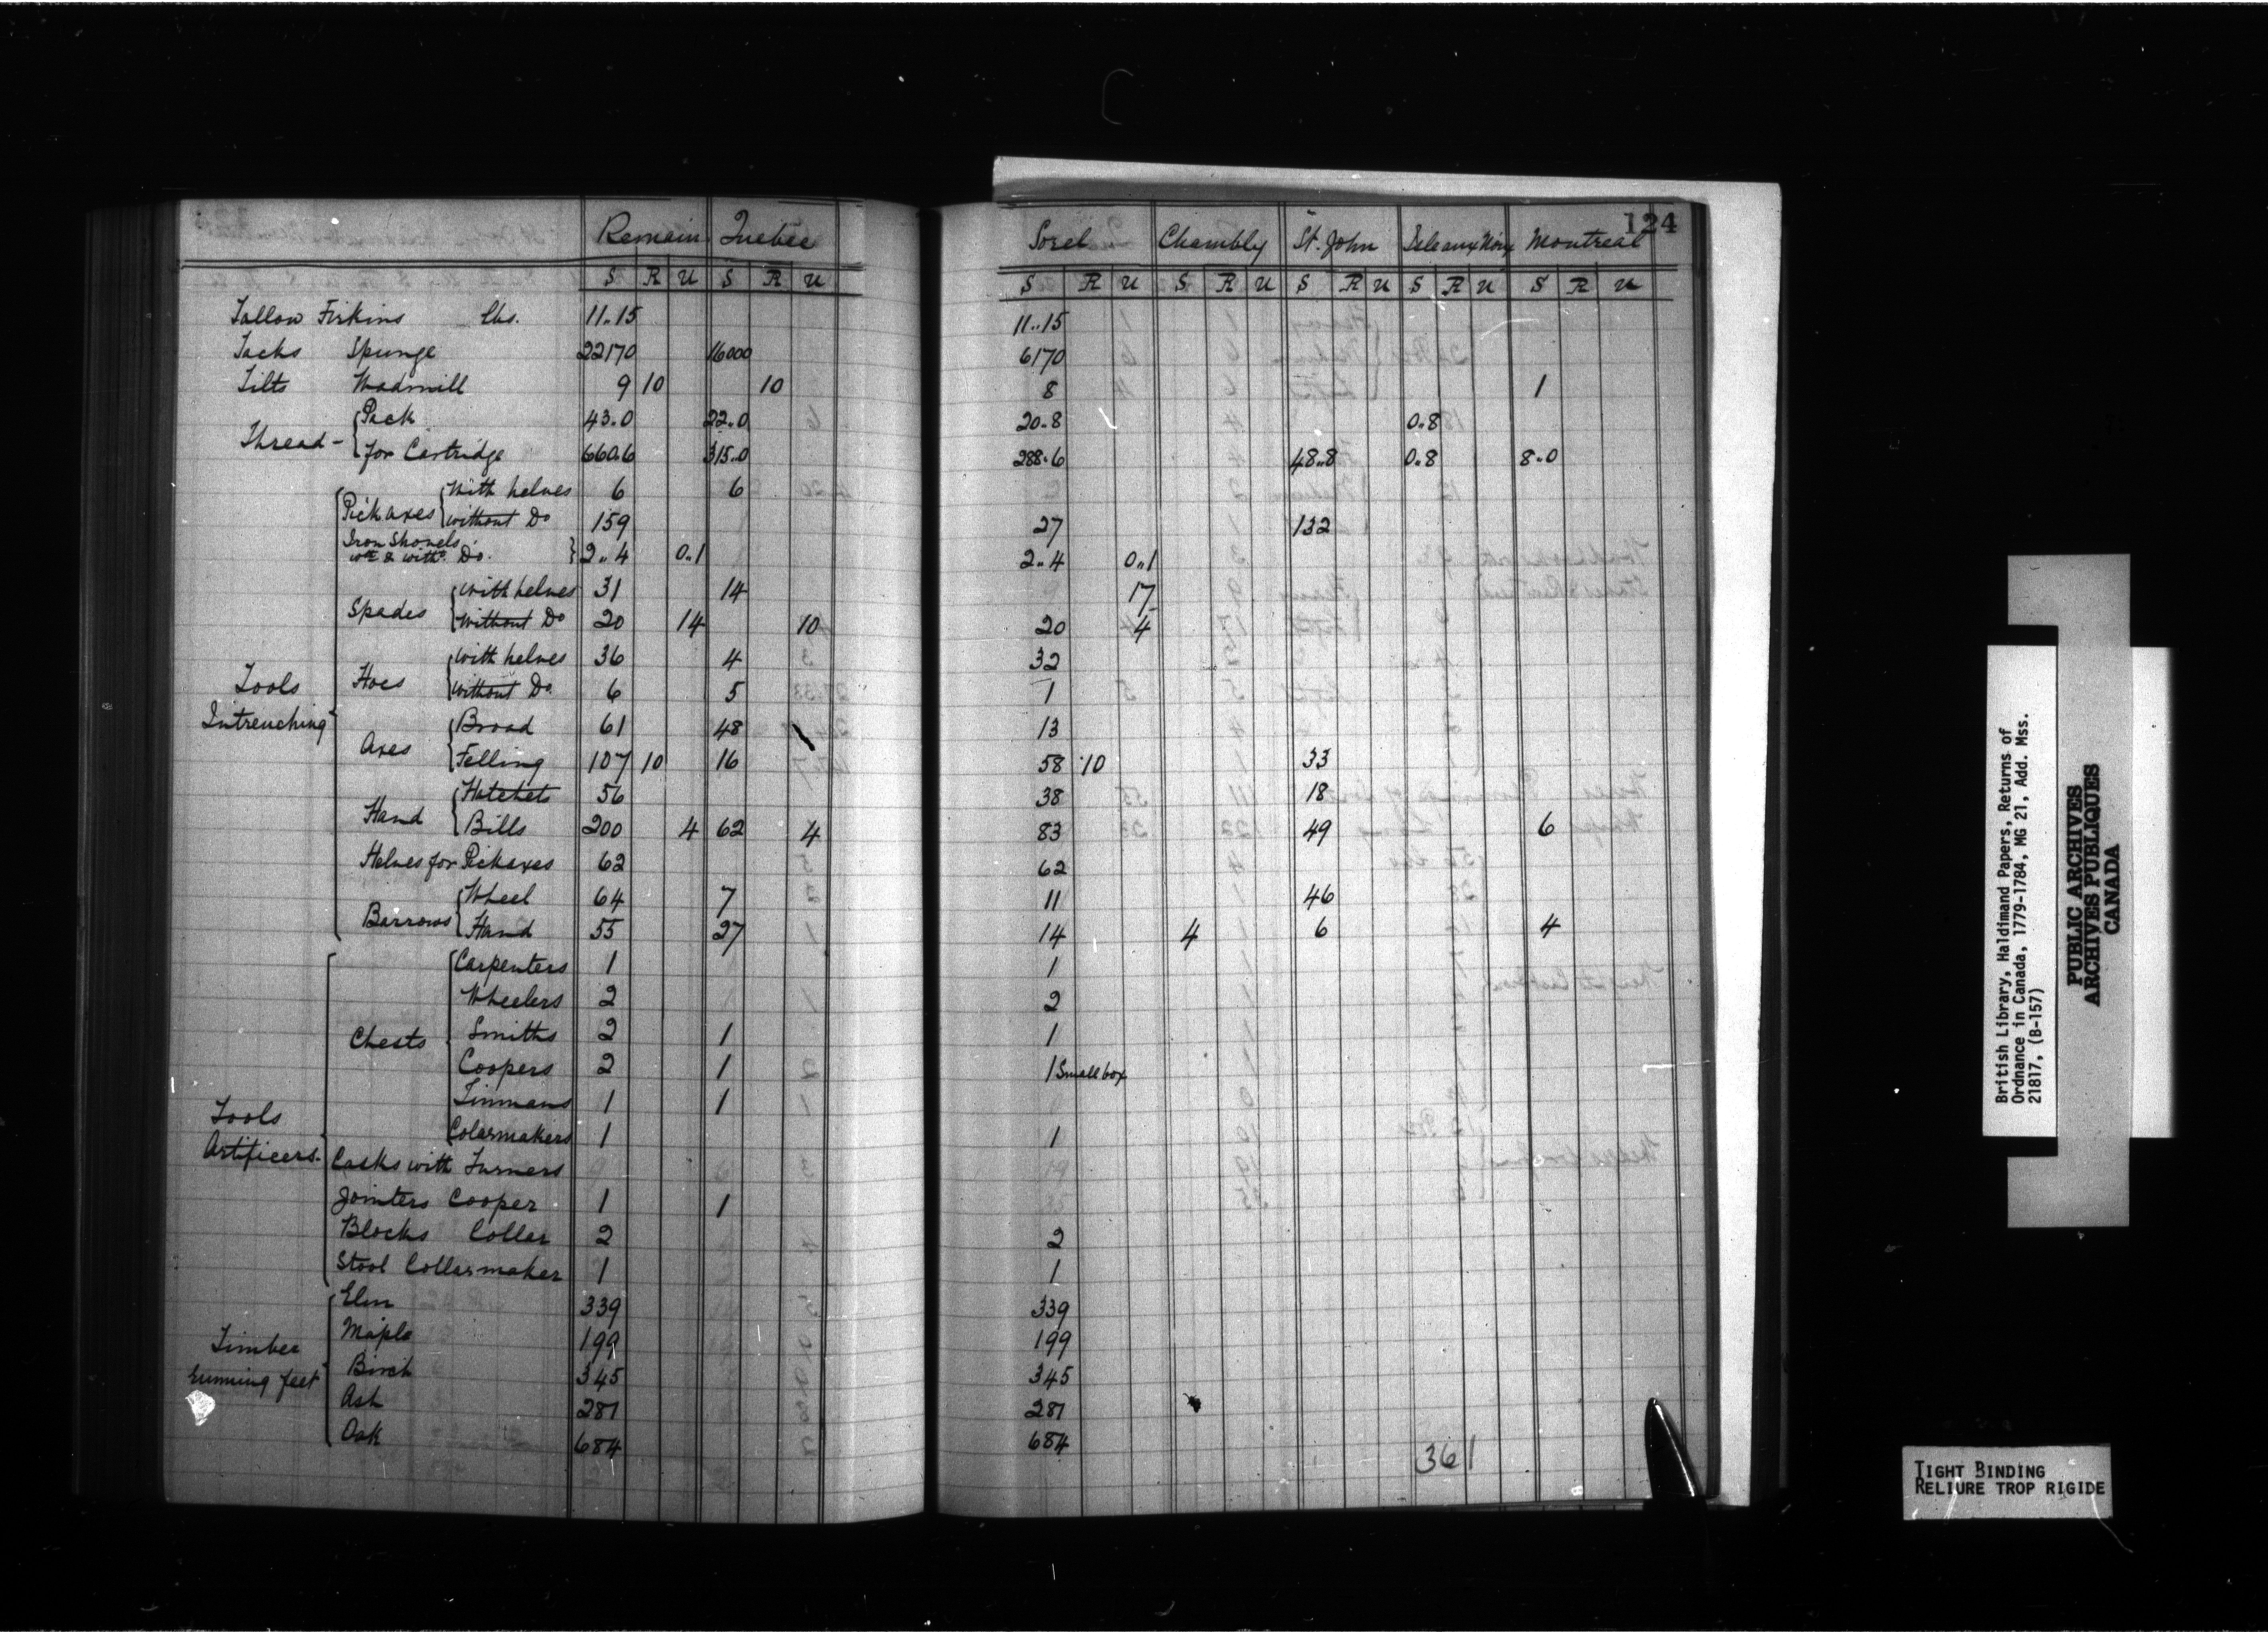 124
Remain Quebec Sorel Chambly St. John Isle aux Noix Montreal
S R U S R U S R U S R U S R U S R U S R U
Tallow Firkins lbs. 11..15 11..15
Tacks Spunge 22170 16000 6170
Tilts Wadmill 9 10 10 8 1
Thread - Pack 43.0 22.0 20.8 0.8
for Cartridge 660.6 315.0 288.6 48.8 0.8 8.0
Tools Intrenching
Pickaxes with helves 6 6
without Do 159 27 132
Iron Shovels
wth & witht. Do. 2..4 0..1 2..4 0..1
Spades with helves 31 14 17
without Do 20 14 10 20 4
Hoes with helves 36 4 32
without Do. 6 5 1
Axes Broad 61 48 13
Felling 107 10 16 58 10 33
Hand Hatchets 56 38 18
Bills 200 4 62 4 83 49 6
Helves for Pickaxes 62 62
Barrows Wheel 64 7 11 46
Hand 55 27 14 4 6 4
Tools Artificers.
Chests Carpenters 1 1
Wheelers 2 2
Smiths 2 1 1
Coopers 2 1 1 Small box
Tinmans 1 1
Colarmakers 1 1
Casks with Turners
Jointers Cooper 1 1
Blocks Collar 2 2
Stool Collarmaker 1 1
Timber running feet
Elm 339 339
Maple 199 199
Birch 345 345
Ash 281 281
Oak 684 684
361
British Library, Haldimand Papers, Returns of
Ordnance in Canada, 1779-1784, MG 21, Add. Mss.
21817, (B-157)
PUBLIC ARCHIVES
ARCHIVES PUBLIQUES
CANADA
TIGHT BINDING
RELIURE TROP RIGIDE